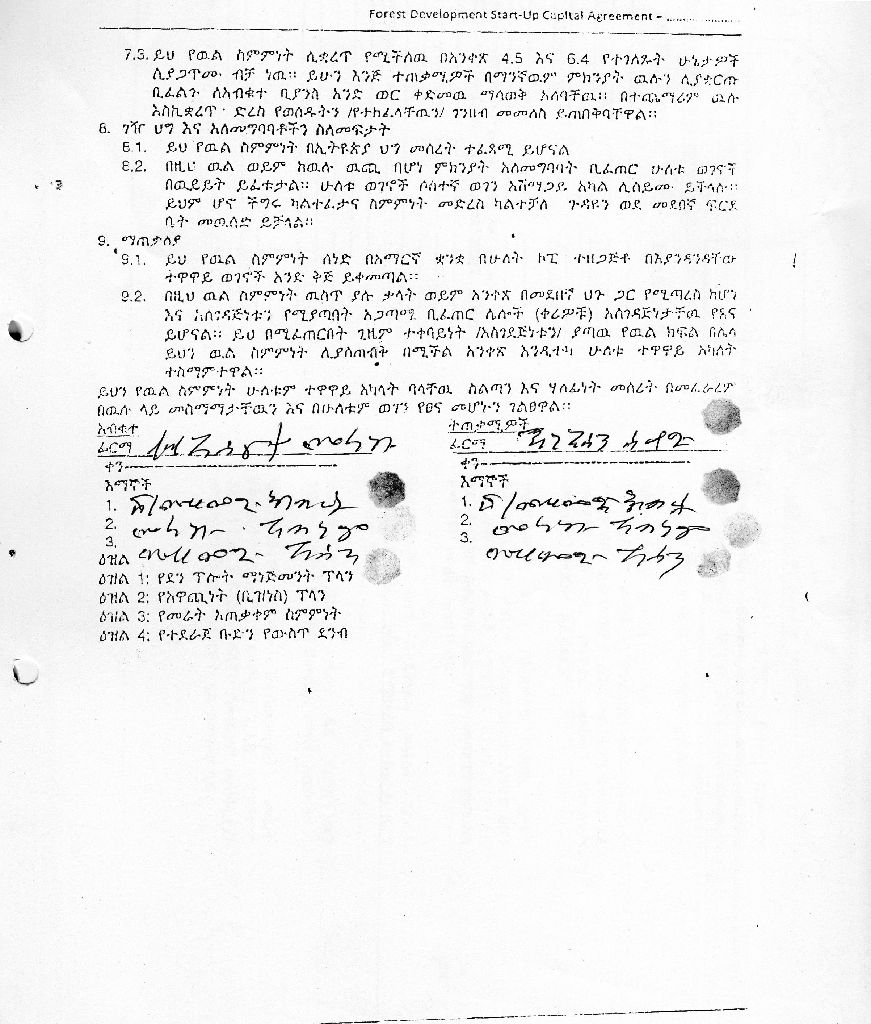 Forest Development Start-Up Capital Agreement -
7.3. ይህ የዉል ስምምነት ሊቋረጥ የሚችለዉ በአንቀጽ 4.5 እና 6.4 የተገለጹት ሁኔታዎች
ሲያጋጥሙ ብቻ ነዉ። ይሁን እንጅ ተጠቃሚዎች በማንኛዉም ምክንያት ዉሉን ሊያቋርጡ
ቢፈልጉ ለአብቁተ ቢያንስ አንድ ወር ቀድመዉ ማሳወቅ አለባቸዉ። በተጨማሪም ዉሉ
እስኪቋረጥ ድረስ የወሰዱትን /የተከፈላቸዉን/ ገንዘብ መመለስ ይጠበቅባቸዋል።
8. ገዥ ህግ እና አለመግባባቶችን ስለመፍታት
8.1. ይህ የዉል ስምምነት በኢትዮጵያ ህግ መሰረት ተፈጻሚ ይሆናል
8.2. በዚህ ዉል ወይም ከዉሉ ዉጪ በሆነ ምክንያት አለመግባባት ቢፈጠር ሁለቱ ወገኖች
በዉይይት ይፈቱታል። ሁለቱ ወገኖች ሶስተኛ ወገን አሸማጋይ አካል ሊሰይሙ ይችላሉ።
ይህም ሆኖ ችግሩ ካልተፈታና ስምምነት መድረስ ካልተቻለ ጉዳዩን ወደ መደበኛ ፍርድ
ቤት መዉሰድ ይቻላል።
9. ማጠቃለያ
9.1. ይህ የዉል ስምምነት ሰነድ በአማርኛ ቋንቋ በሁለት ኮፒ ተዘጋጅቶ በእያንዳንዳቸው
ተዋዋይ ወገኖች አንድ ቅጅ ይቀመጣል።
9.2. በዚህ ዉል ስምምነት ዉስጥ ያሉ ቃላት ወይም አንቀጽ በመደበኛ ህጉ ጋር የሚጣረስ ከሆነ
እና አስገዳጅነቱን የሚያጣበት አጋጣሚ ቢፈጠር ሌሎች (ቀሪዎቹ) አስገዳጅነታቸዉ የጸና
ይሆናል። ይህ በሚፈጠርበት ጊዜም ተቀባይነት /አስገደጅነቱን/ ያጣዉ የዉል ክፍል በሌላ
ይህን ዉል ስምምነት ሊያስጠብቅ በሚችል አንቀጽ እንዲተካ ሁለቱ ተዋዋይ አካላት
ተስማምተዋል።
ይህን የዉል ስምምነት ሁለቱም ተዋዋይ አካላት ባላቸዉ ስልጣን እና ሃላፊነት መሰረት በመፈራረም
በዉሉ ላይ መስማማታቸዉን እና በሁለቱም ወገን የፀና መሆኑን ገልፀዋል።
አብቁተ
ተጠቃሚዎች
ፊርማ
ፊርማ
ቀን
ቀን
እማኞች
እማኞች
1.
1.
2.
2.
3.
3.
ዕዝል
ዕዝል 1: የደን ፕሎት ማኔጅመንት ፕላን
ዕዝል 2: የአዋጪነት (ቢዝነስ) ፕላን
ዕዝል 3: የመሬት አጠቃቀም ስምምነት
ዕዝል 4: የተደራጀ ቡድን የውስጥ ደንብ